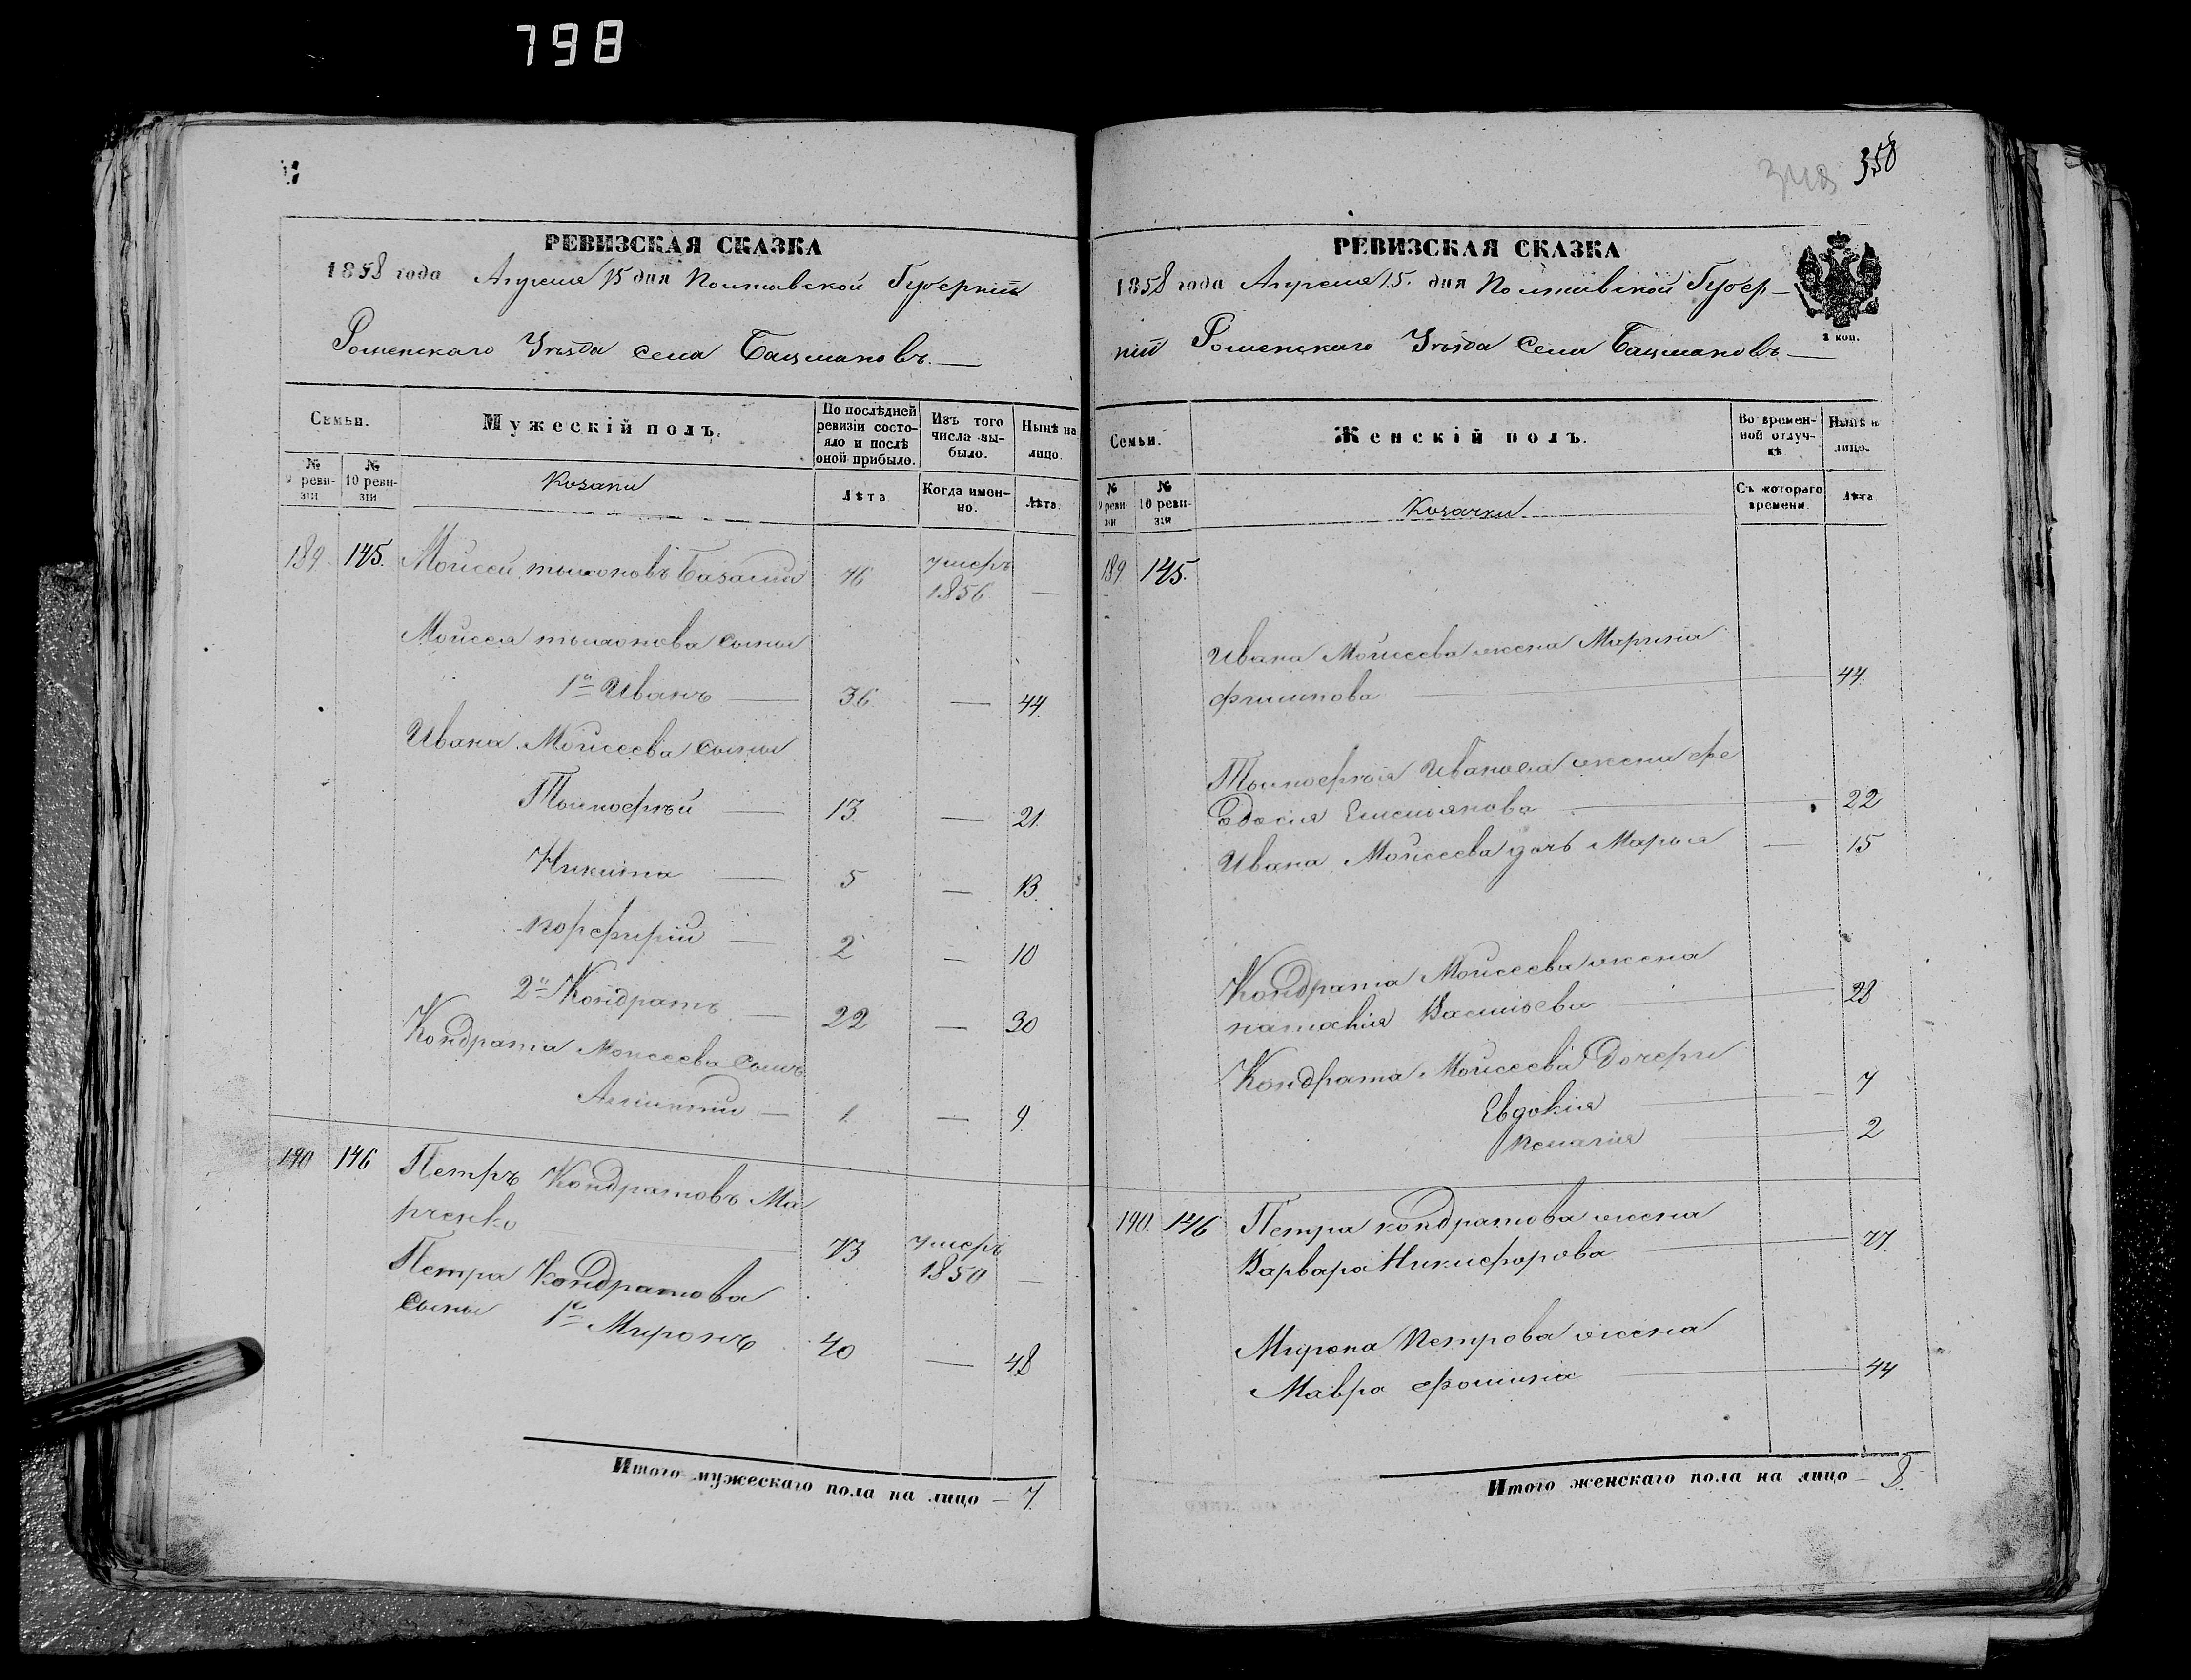 798
РЕВИЗСКАЯ СКАЗКА
1858 года Апреля 15 дня Полтавской Губерніи
Роменскаго Уезда Села Бацмановъ.
Семьи.
Мужескій полъ.
По послѣдней ревизіи состояло и послѣ оной прибыло.
Изъ того числа выбыло.
Нынѣ на лицо.
№ 9 ревизіи
№ 10 ревизіи
Козаки
Лѣта
Когда именно.
Лѣта.
189 145. Моисей 46 умеръ
1856 —
Моисея сыны
1й Иванъ — 36 — 44.
Ивана Моисеева сыны
Тимофей — 13 — 21.
Никита — 5 — 13.
Порфирій — 2 — 10
2й Кондратъ — 22 — 30
Кондрата Моисеева сынъ
— 1. — 9.
190 146 Петръ Кондратовъ Ма
рченко 73 умеръ
1850 —
Петра Кондратова
сыны 1й Миронъ 40 — 48
Итого мужескаго пола на лицо — 7.
358
348
РЕВИЗСКАЯ СКАЗКА
1858 года Апреля 15. дня Полтавской Губер-
ніи Роменскаго Уезда Села Бацмановъ
2 коп.
Семьи.
Женскій полъ.
Во временной отлучкѣ
Нынѣ на лицо.
№ 9 ревизіи
№ 10 ревизіи
Козачки
Съ котораго времени.
Лѣта
189 145.
Ивана Моисеева жена Марина
44.
Ивана Моисеева жена Фе
одосия Емельянова — 22
Ивана Моисеева дочь Марья — 15
Кондрата Моисеева жена
Наталия Васильева — 28
Кондрата Моисеева Дочери
Евдокия — 7
Пелагия — 2
190. 146 Петра Кондратова жена
Варвара Никифорова — 77.
Мирона Петрова жена
Мавра Фомина — 44
Итого женскаго пола на лицо — 8.